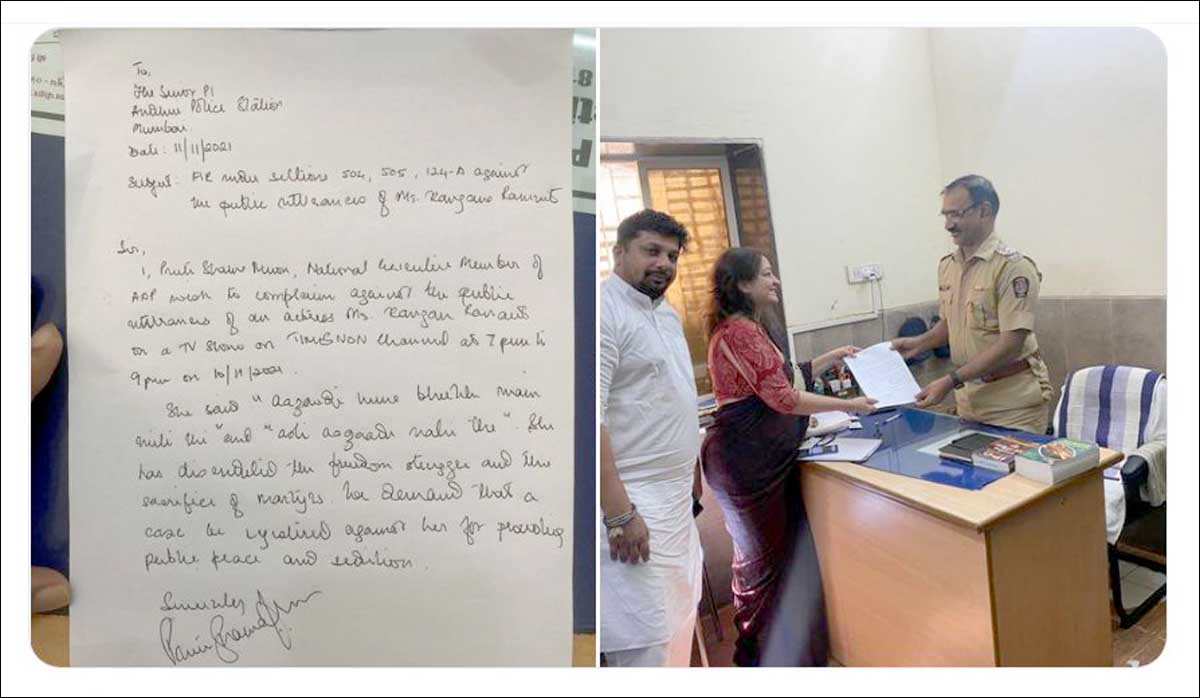 To,
The Senior PI
Andheri Police Station
Mumbai.
Date: 11/11/2021
Subject: FIR under sections 504, 505, 124-A against
the public utterances of Ms. Kangana Ranaut
Sir,
I, Preeti Sharma Menon, National Executive Member of
AAP wish to complain against the public
utterances of an actress Ms. Kangan Ranaut
on a TV show on TIMESNOW channel at 7pm to
9pm on 10/11/2021.
She said "Aazaadi hume bheekh main
mili thi" and "asli aazaadi nahi the". She
has discredited the freedom struggle and the
sacrifice of martyrs. We demand that a
case be registered against her for provoking
public peace and sedition.
Sincerely